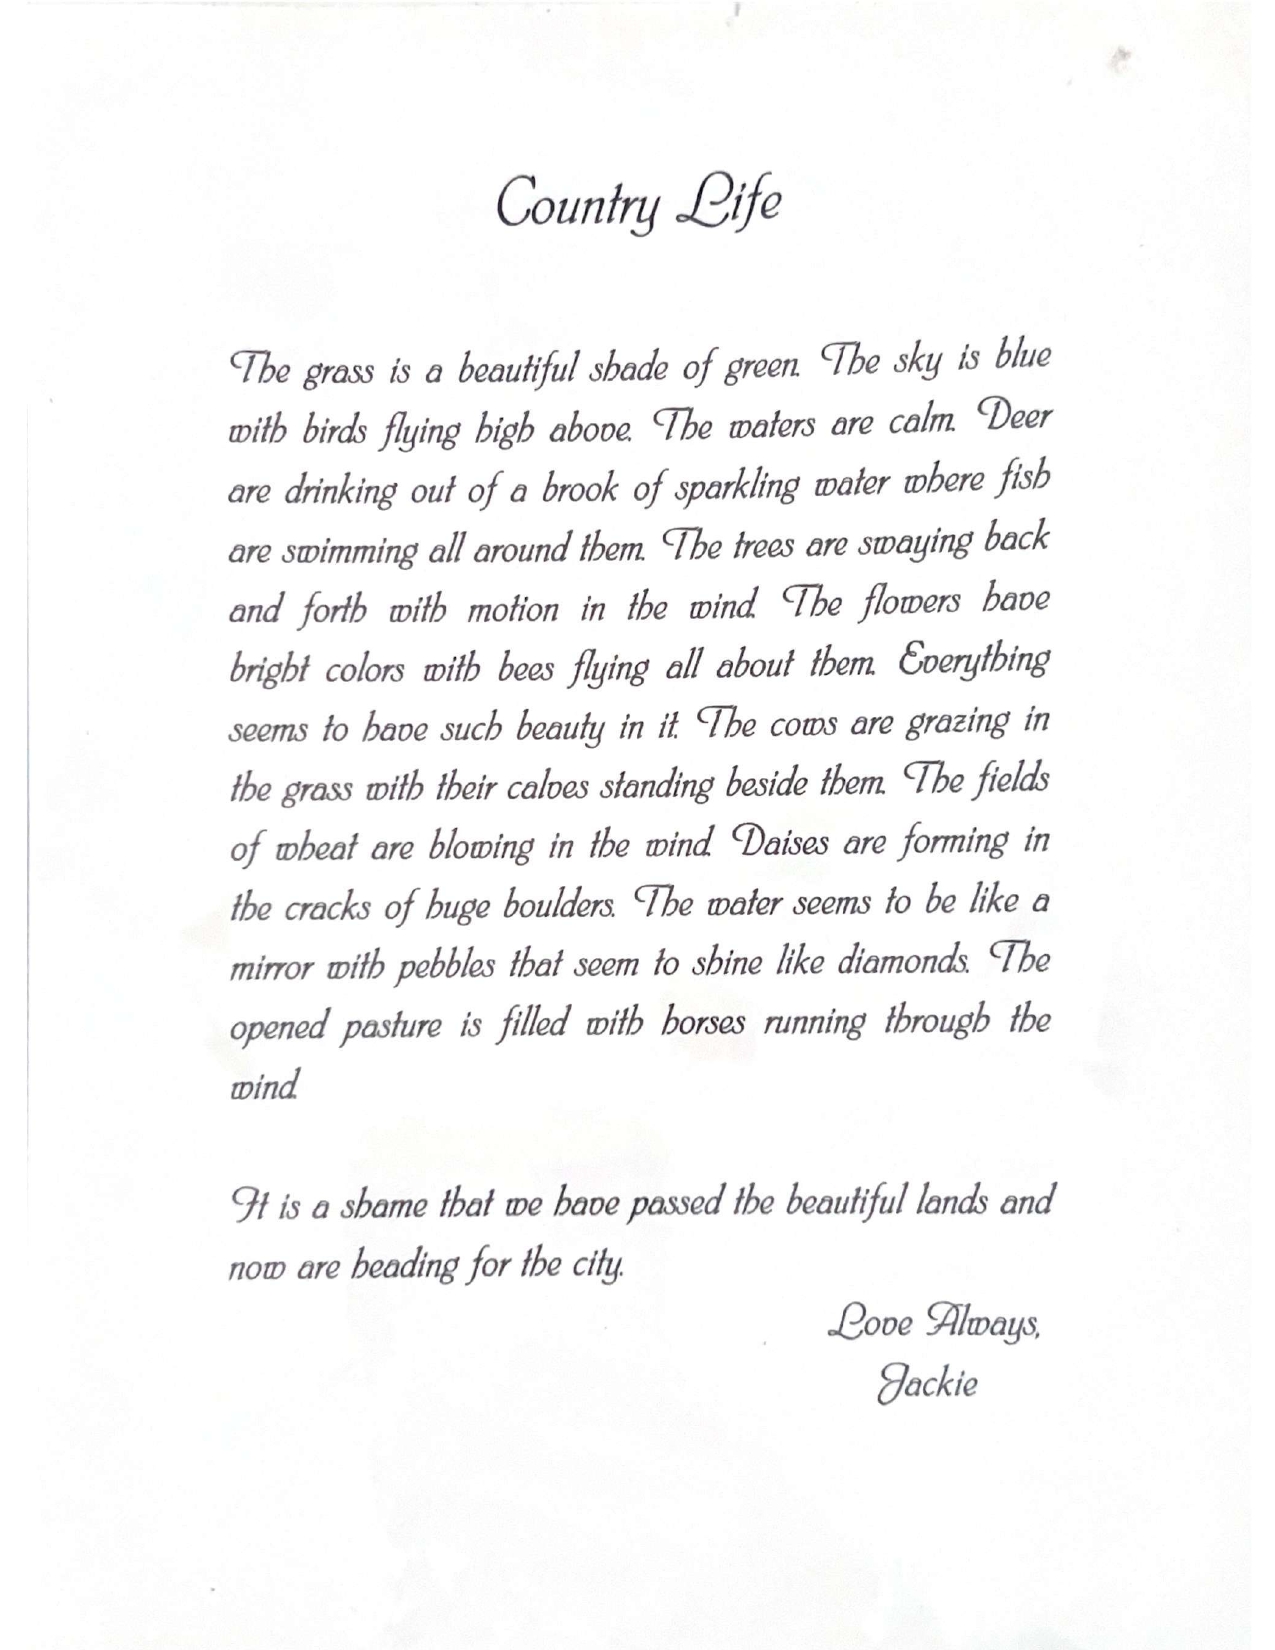 Country Life
The grass is a beautiful shade of green. The sky is blue
with birds flying high above. The waters are calm. Deer
are drinking out of a brook of sparkling water where fish
are swimming all around them. The trees are swaying back
and forth with motion in the wind. The flowers have
bright colors with bees flying all about them. Everything
seems to have such beauty in it. The cows are grazing in
the grass with their calves standing beside them. The fields
of wheat are blowing in the wind. Daises are forming in
the cracks of huge boulders. The water seems to be like a
mirror with pebbles that seem to shine like diamonds. The
opened pasture is filled with horses running through the
wind.
It is a shame that we have passed the beautiful lands and
now are heading for the city.
Love Always,
Jackie